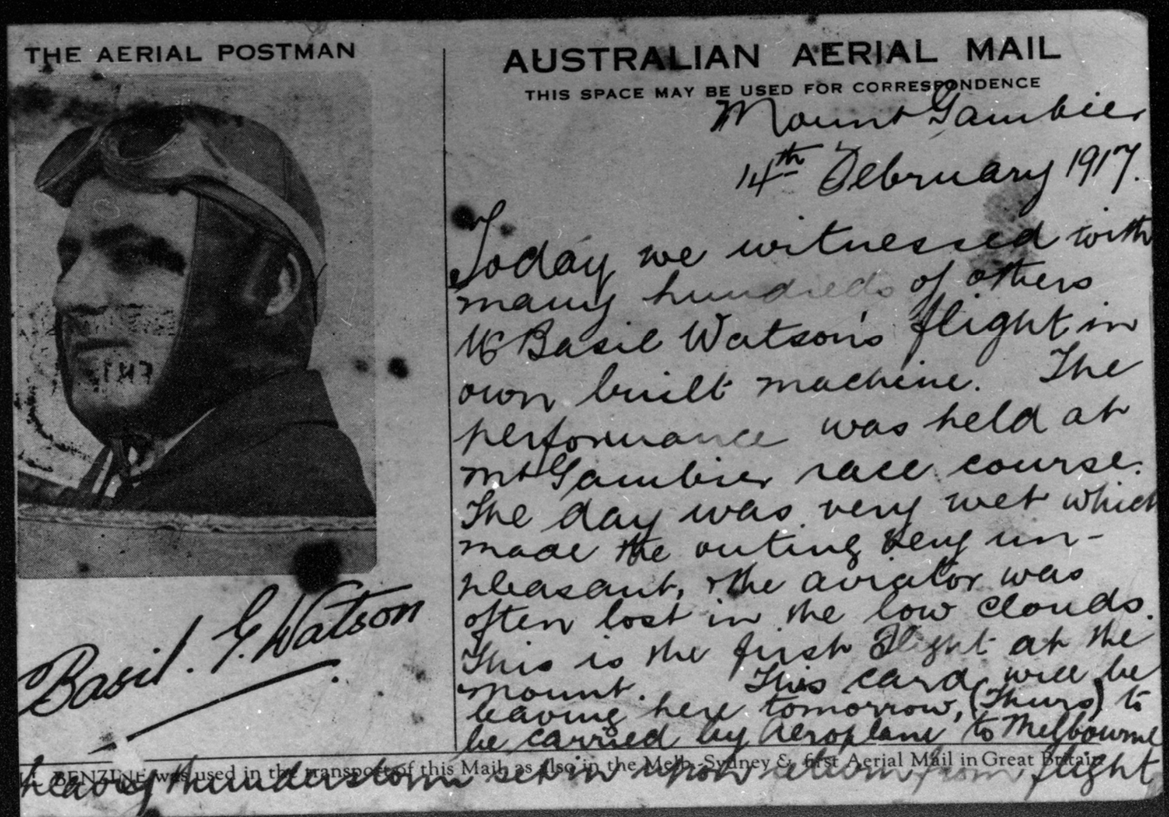 THE AERIAL POSTMAN
Basil. G. Watson
AUSTRALIAN AERIAL MAIL
THIS SPACE MAY BE USED FOR CORRESPONDENCE
Mount Gambier
14th February 1917.
Today we witnessed with
many hundreds of others
Mr Basil Watson's flight in
own built machine. The
performance was held at
Mt Gambier race course.
The day was very wet which
made the outing very un-
pleasant, & the aviator was
often lost in the low clouds.
This is the first flight at the
Mount. This card will be
leaving here tomorrow, (Thurs) to
be carried by Aeroplane to Melbourne
BENZINE was used in the transport of this Mail, as also in the Melb. Sydney & first Aerial Mail in Great Britain
heavy thunderstorm set in upon return from flight